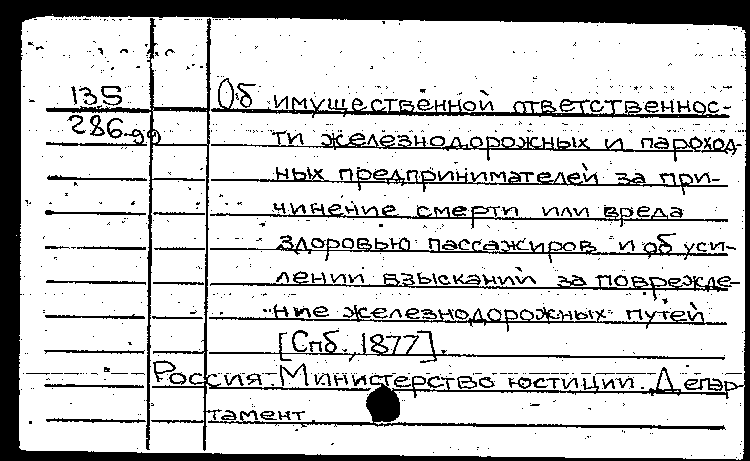 135 Об имущественной ответственнос-
286-99 ти железнодорожных и пароход-
ных предпринимателей за при-
чинение смерти или вреда
здоровью пассажиров и об уси-
лении взысканий за поврежде-
ние железнодорожных путей
[Спб., 1877].
Россия. Министерство юстиции. Депар-
тамент.